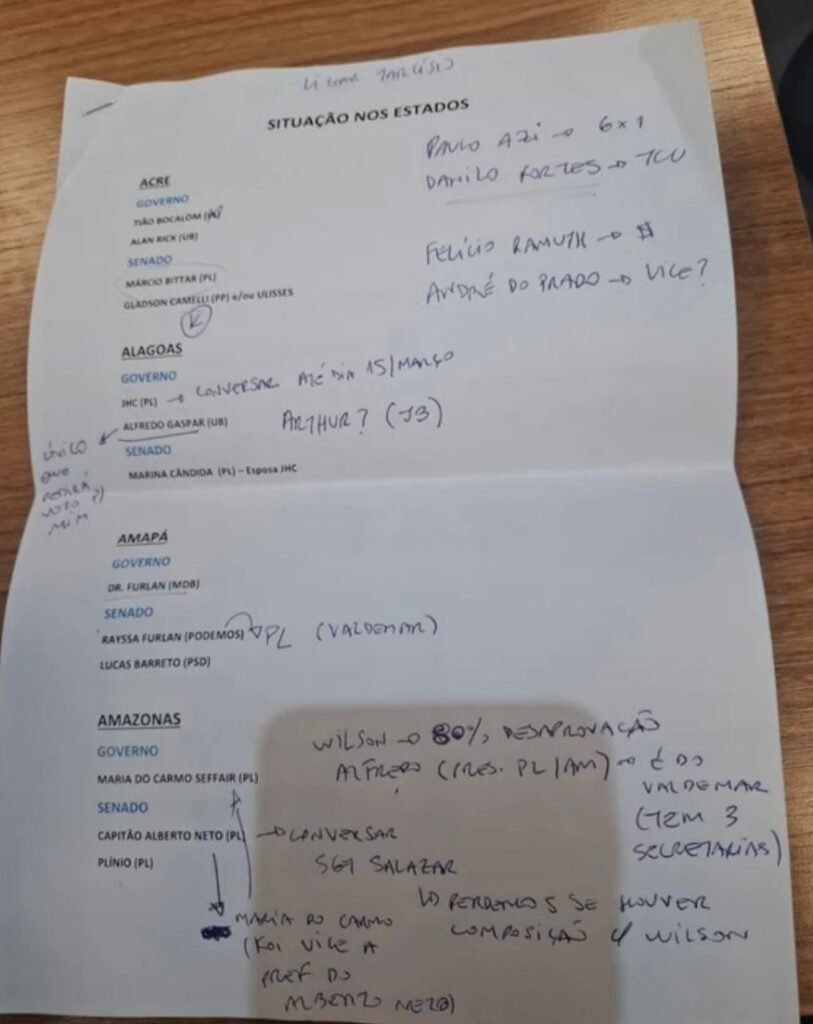 LIGAR TARCÍSIO
SITUAÇÃO NOS ESTADOS
PAULO AZI → 6x1
DANILO FORTES → TCU
FELÍCIO RAMUTH → $
ANDRÉ DO PRADO → VICE?
ACRE
GOVERNO
TIÃO BOCALOM (PL)
ALAN RICK (UB)
SENADO
MÁRCIO BITTAR (PL)
GLADSON CAMELLI (PP) e/ou ULISSES
K
ALAGOAS
GOVERNO
JHC (PL) → CONVERSAR ATÉ DIA 15/MARÇO
ALFREDO GASPAR (UB) ARTHUR? (JB)
ÚNICO
QUE
PEDIRÁ
VOTO P/
MIM
SENADO
MARINA CÂNDIDA (PL) – Esposa JHC
AMAPÁ
GOVERNO
DR. FURLAN (MDB)
SENADO
RAYSSA FURLAN (PODEMOS) → PL (VALDEMAR)
LUCAS BARRETO (PSD)
AMAZONAS
GOVERNO
MARIA DO CARMO SEFFAIR (PL)
SENADO
CAPITÃO ALBERTO NETO (PL) → CONVERSAR
PLÍNIO (PL)
WILSON → 80% DESAPROVAÇÃO
ALFREDO (PRES. PL/AM) → É DO
VALDEMAR
(TEM 3
SECRETARIAS)
SGT SALAZAR
↳ PERDEMOS SE HOUVER
COMPOSIÇÃO C/ WILSON
MARIA DO CARMO
(FOI VICE A
PREF DO
ALBERTO NETO)